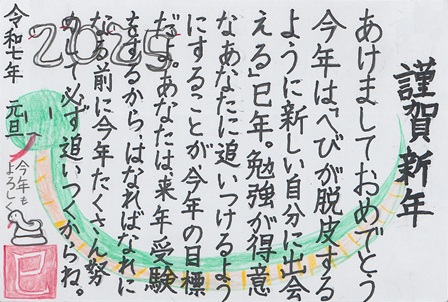 謹賀新年
あけましておめでとう
今年は、「へびが脱皮する
ように新しい自分に出会
える」巳年。勉強が得意
なあなたに追いつけるよう
にすることが今年の目標
だよ。あなたは、来年受験
をするから、はなればなれに
なる前に今年たくさん努
力して必ず追いつくからね。
2025
令和七年 元旦
今年も
よろしく
巳